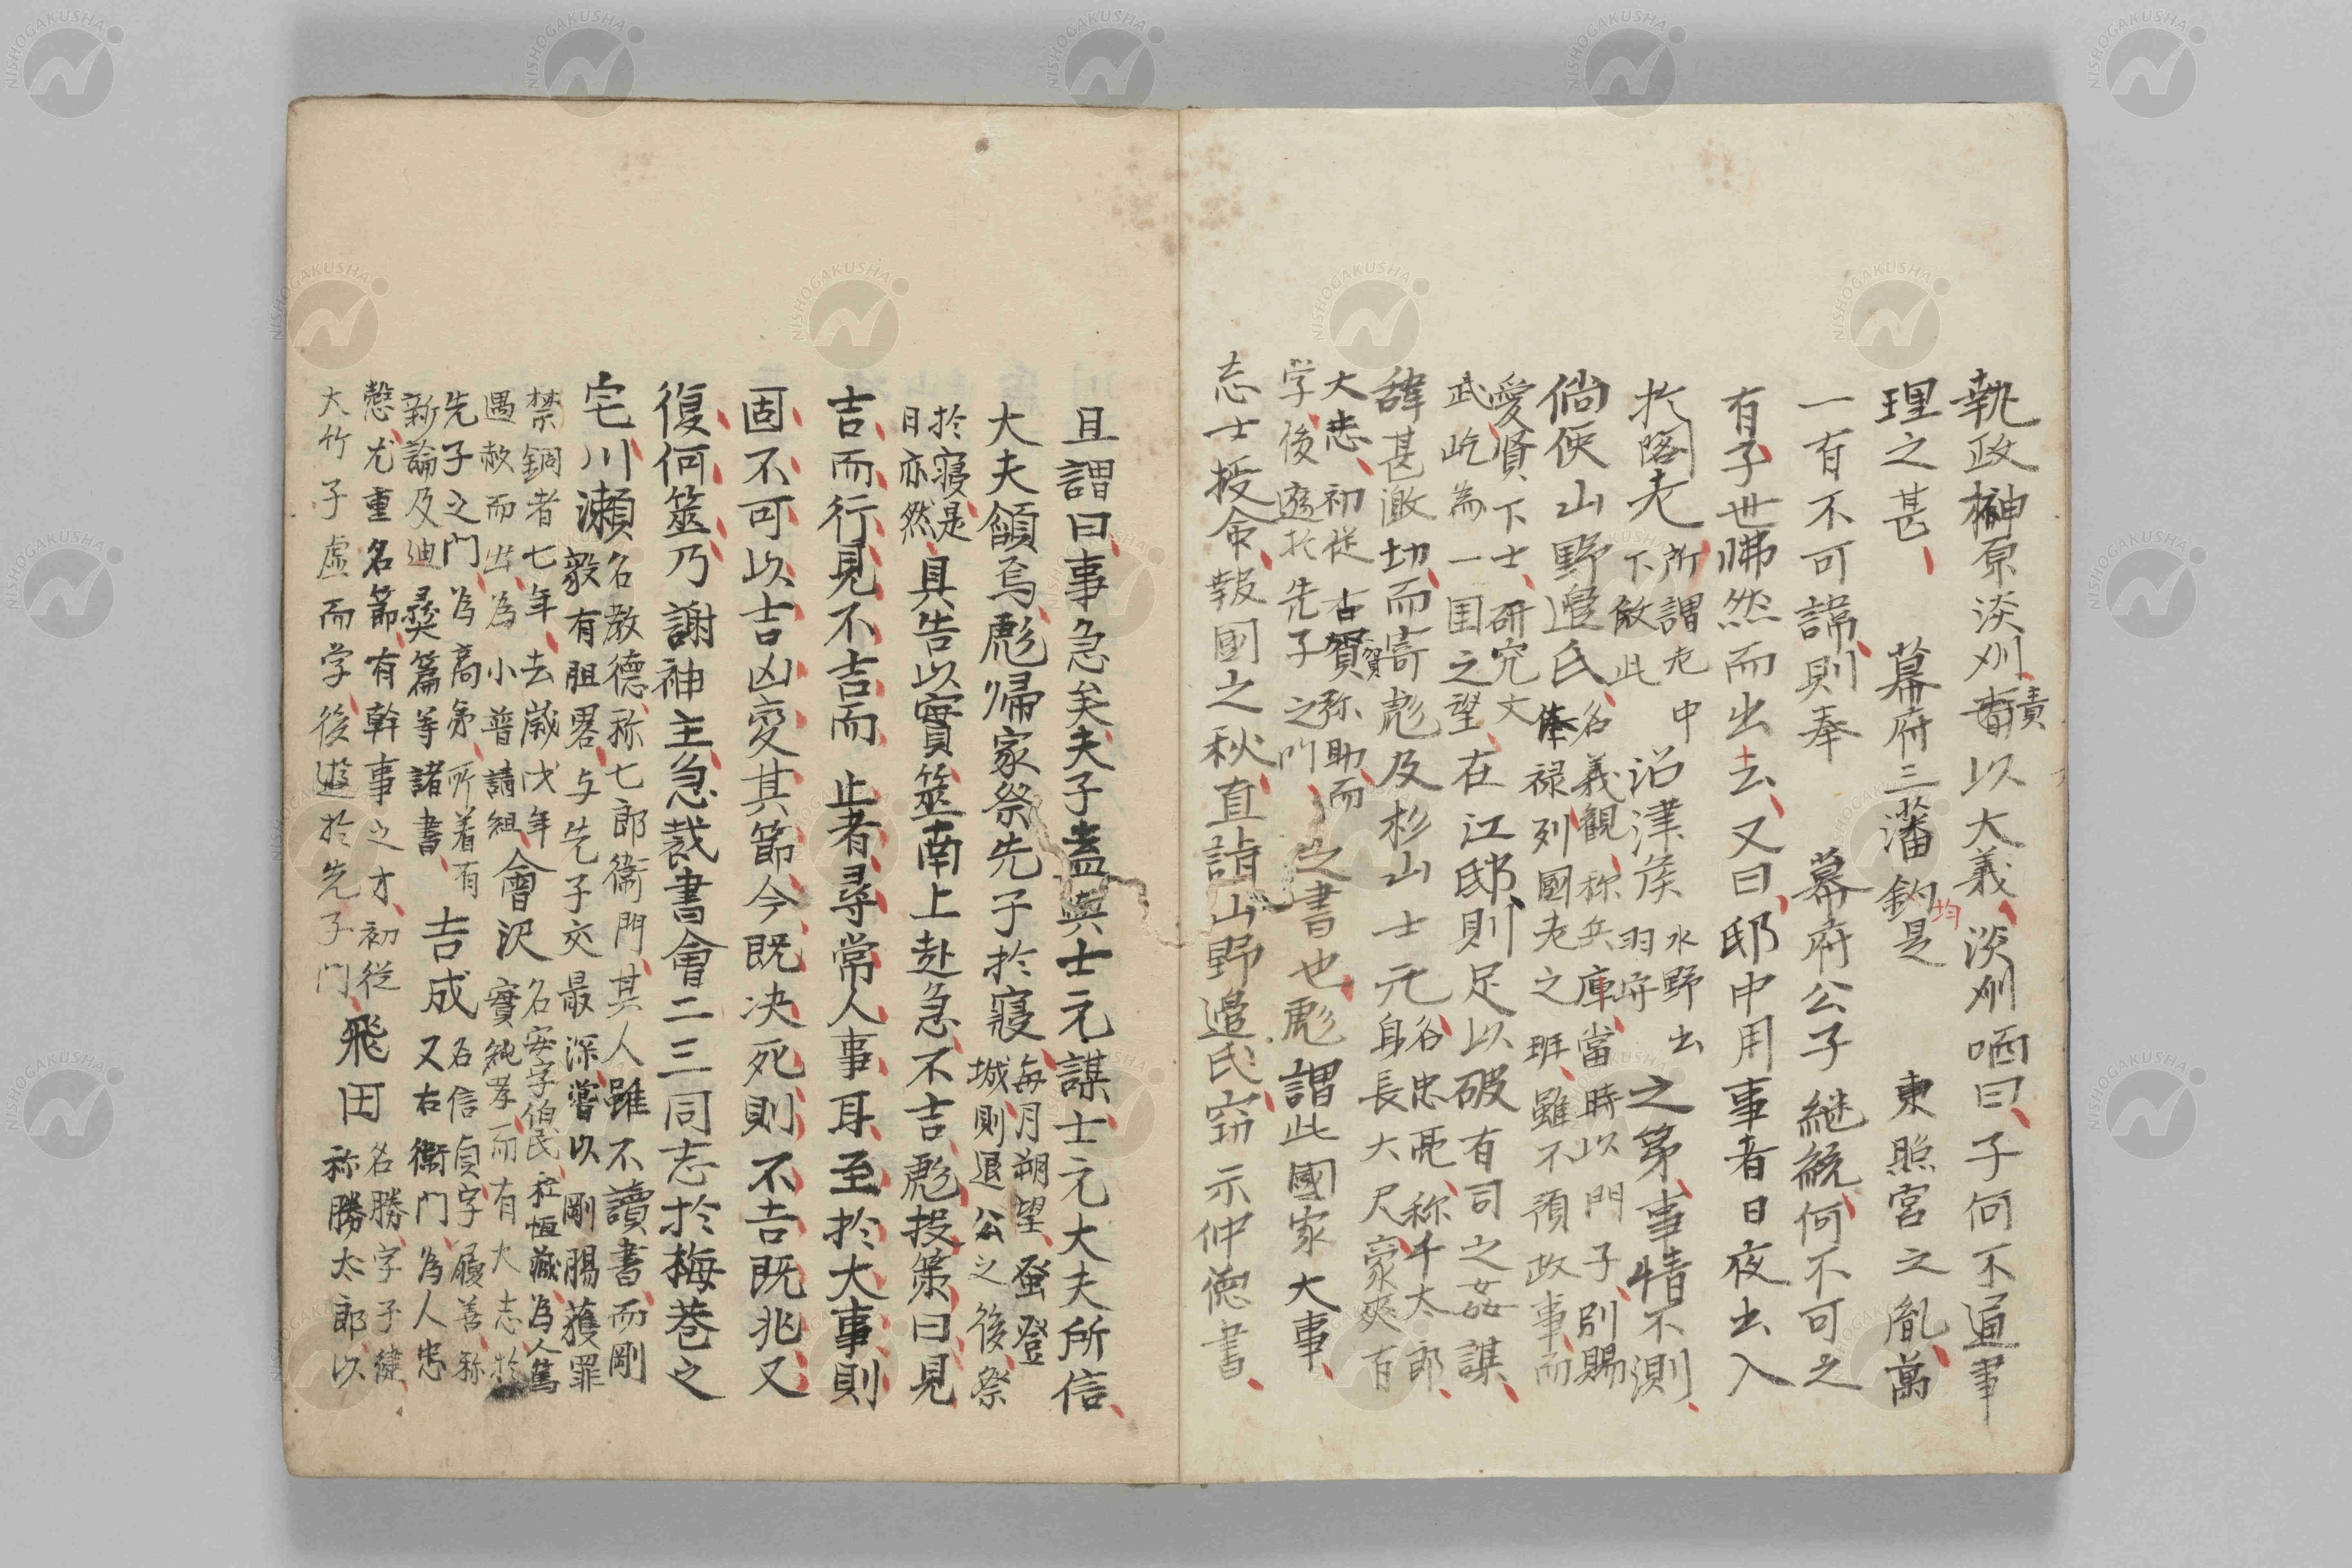 執政榊原淡州責以大義淡州哂曰子何不通事
理之甚　幕府三藩鈞是　東照宮之胤萬
均
一有不可諱則奉　幕府公子継統何不可之
有子世怫然而出去又曰邸中用事者日夜出入
於閣老所謂老中下效此沿津侯水野出羽守之第事情不測
倘使山野邉氏名義観称兵庫當時以門子別賜俸禄列國老之班雖不預政事而
愛賢下士研究文武屹為一国之望在江邸則足以破有司之姦謀
諱甚激切而寄彪及杉山士元谷忠亮称千太郎身長大尺豪爽有
大志初従古賀弥助而学後遊於先子之門之書也彪謂此國家大事
志士授命報國之秋直詣山野邉氏窃示仲徳書
且謂曰事急矣夫子盍與士元謀士元大夫所信
大夫頷焉彪帰家祭先子於寝毎月朔望蚤登城則退公之後祭
於寝是日亦然具告以實筮南上赴急不吉彪投策曰見
吉而行見不吉而止者尋常人事耳至於大事則
固不可以吉凶変其節今既决死則不吉既兆又
復何筮乃謝神主急裁書會二三同志於梅巷之
宅川瀬名教徳称七郎衛門其人雖不讀書而剛毅有胆畧与先子交最深嘗以剛腸獲罪
禁錮者七年去歳戊年遇赦而出為小普請組會沢名安字伯民称恒蔵為人篤實純孝而有大志於
先子之門為高弟所着有新論及迪彛篇等諸書吉成名信貞字履善称又右衛門為人忠
愨尤重名節有幹事之才初従大竹子虚而学後遊於先子門飛田名勝字子健称勝太郎以